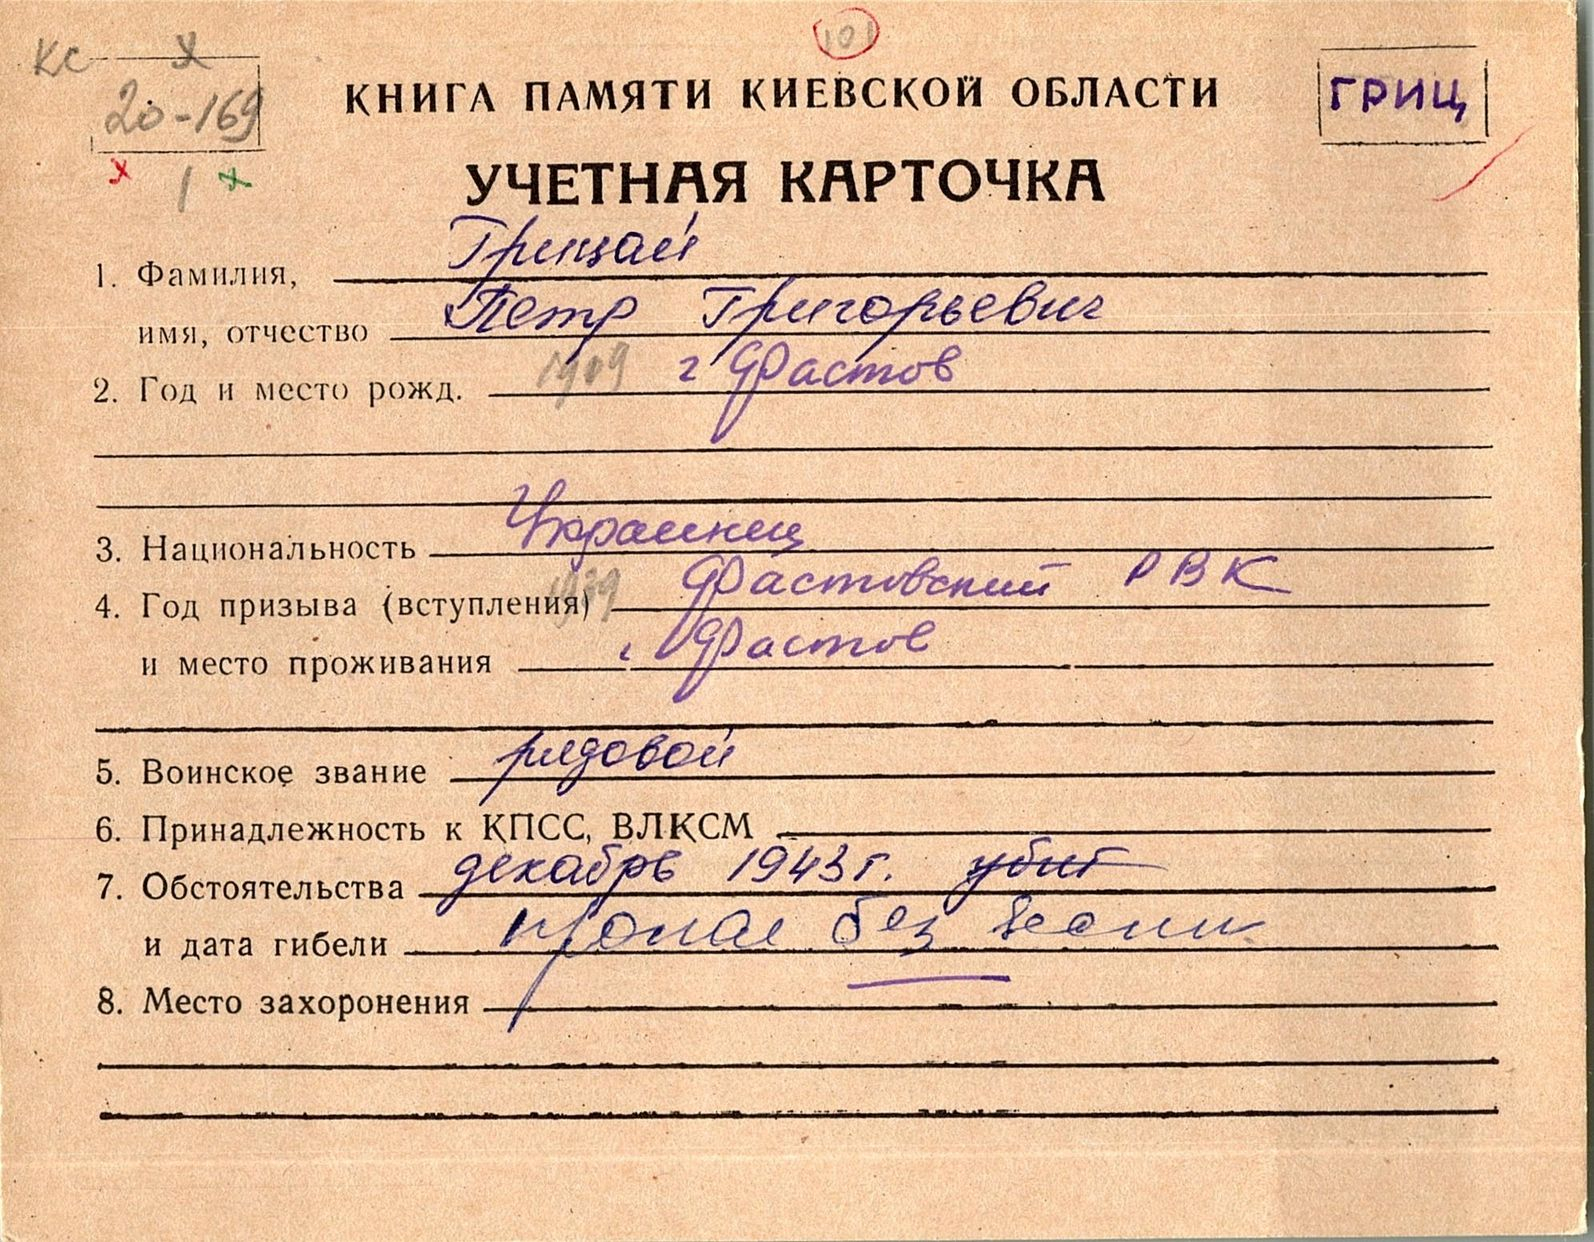 КС Х
20-169
101
КНИГА ПАМЯТИ КИЕВСКОЙ ОБЛАСТИ
ГРИЦ
х 1 х
УЧЕТНАЯ КАРТОЧКА
1. Фамилия, Грицай
имя, отчество Петр Григорьевич
2. Год и место рожд. 1909 г Фастов
3. Национальность Украинец
4. Год призыва (вступления) 1939 Фастовский РВК
и место проживания г Фастов
5. Воинское звание рядовой
6. Принадлежность к КПСС, ВЛКСМ
7. Обстоятельства декабрь 1943 г. убит
и дата гибели пропал без вести
8. Место захоронения